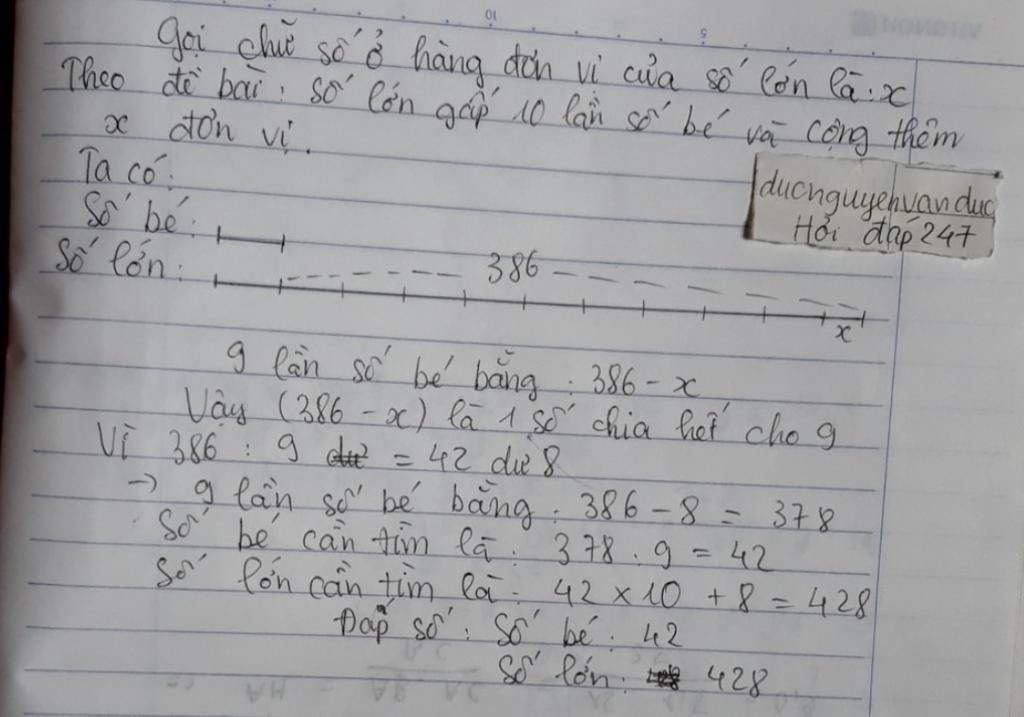 Gọi chữ số ở hàng đơn vị của số lớn là: x
Theo đề bài: Số lớn gấp 10 lần số bé và cộng thêm
x đơn vị.
Ta có:
Số bé:
Số lớn:
386
x
9 lần số bé bằng: 386 - x
Vậy (386 - x) là 1 số chia hết cho 9
Vì 386 : 9 = 42 dư 8
→ 9 lần số bé bằng: 386 - 8 = 378
Số bé cần tìm là: 378 : 9 = 42
Số lớn cần tìm là: 42 x 10 + 8 = 428
Đáp số: Số bé: 42
Số lớn: 428
ducnguyenvanduc
Hỏi đáp 247
10
5